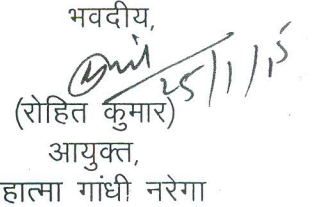 भवदीय,
25/1/15
(रोहित कुमार)
आयुक्त,
हात्मा गांधी नरेगा